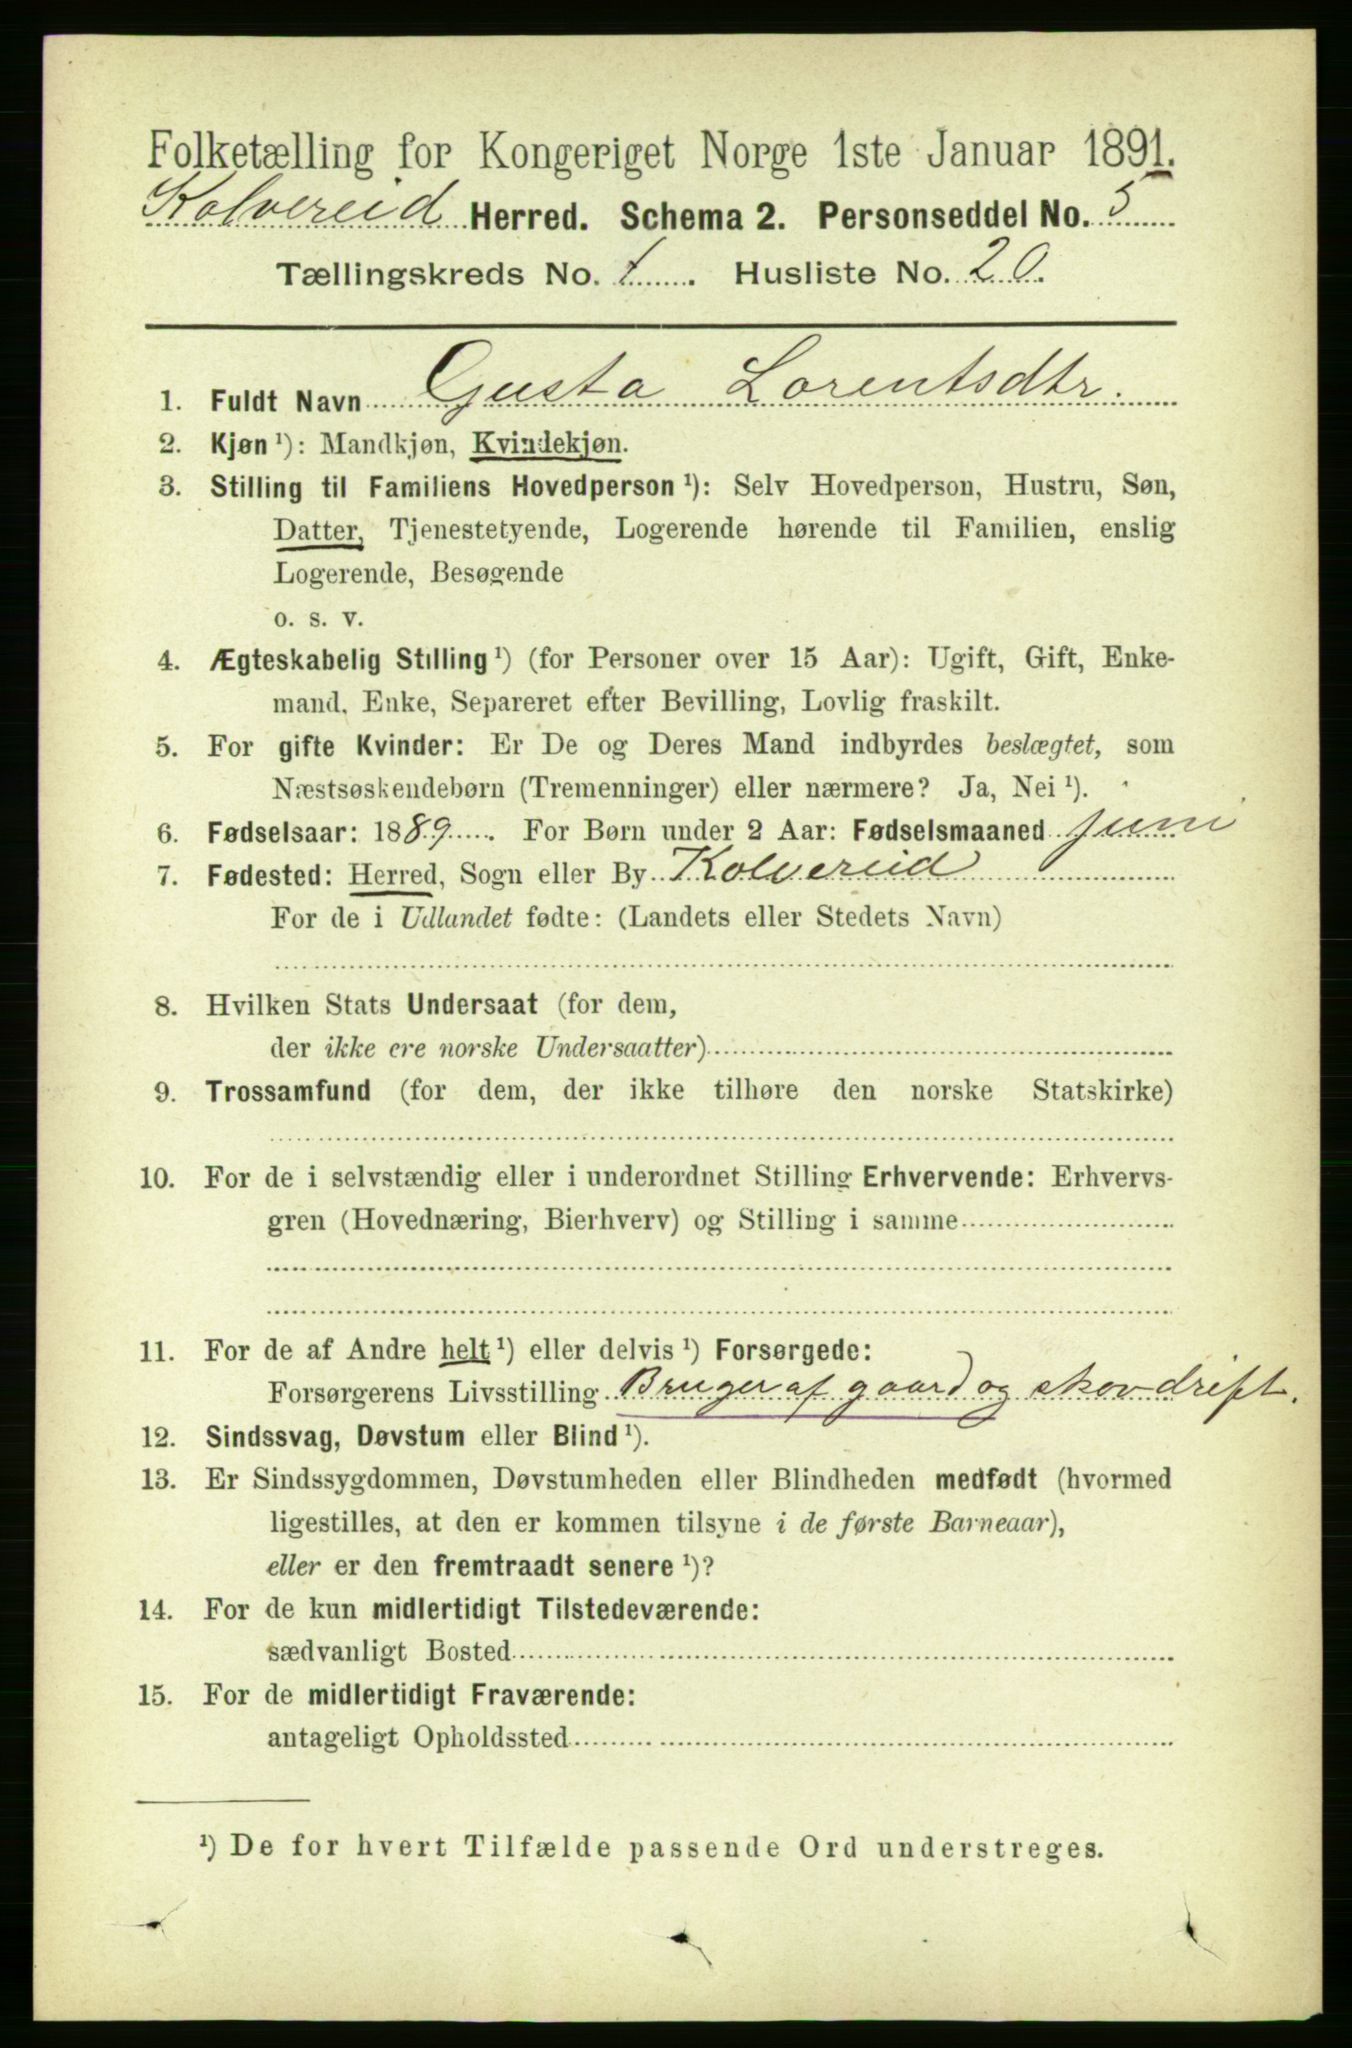 Folketælling for Kongeriget Norge 1ste Januar 1891.
Kolvereid Herred. Schema 2. Personseddel No. 5
Tællingskreds No. 1. Husliste No. 20.
1. Fuldt Navn Gusta Lorentsdtr.
2. Kjøn ¹): Mandkjøn, Kvindekjøn.
3. Stilling til Familiens Hovedperson ¹): Selv Hovedperson, Hustru, Søn,
Datter, Tjenestetyende, Logerende hørende til Familien, enslig
Logerende, Besøgende
o. s. v.
4. Ægteskabelig Stilling ¹) (for Personer over 15 Aar): Ugift, Gift, Enke-
mand, Enke, Separeret efter Bevilling, Lovlig fraskilt.
5. For gifte Kvinder: Er De og Deres Mand indbyrdes beslægtet, som
Næstsøskendebørn (Tremenninger) eller nærmere? Ja, Nei ¹).
6. Fødselsaar: 1889. For Børn under 2 Aar: Fødselsmaaned Juni
7. Fødested: Herred, Sogn eller By Kolvereid
For de i Udlandet fødte: (Landets eller Stedets Navn)
8. Hvilken Stats Undersaat (for dem,
der ikke ere norske Undersaatter)
9. Trossamfund (for dem, der ikke tilhøre den norske Statskirke)
10. For de i selvstændig eller i underordnet Stilling Erhvervende: Erhvervs-
gren (Hovednæring, Bierhverv) og Stilling i samme
11. For de af Andre helt ¹) eller delvis ¹) Forsørgede:
Forsørgerens Livsstilling Bruger af gaard og skovdrift.
12. Sindssvag, Døvstum eller Blind ¹).
13. Er Sindssygdommen, Døvstumheden eller Blindheden medfødt (hvormed
ligestilles, at den er kommen tilsyne i de første Barneaar),
eller er den fremtraadt senere ¹)?
14. For de kun midlertidigt Tilstedeværende:
sædvanligt Bosted
15. For de midlertidigt Fraværende:
antageligt Opholdssted
¹) De for hvert Tilfælde passende Ord understreges.